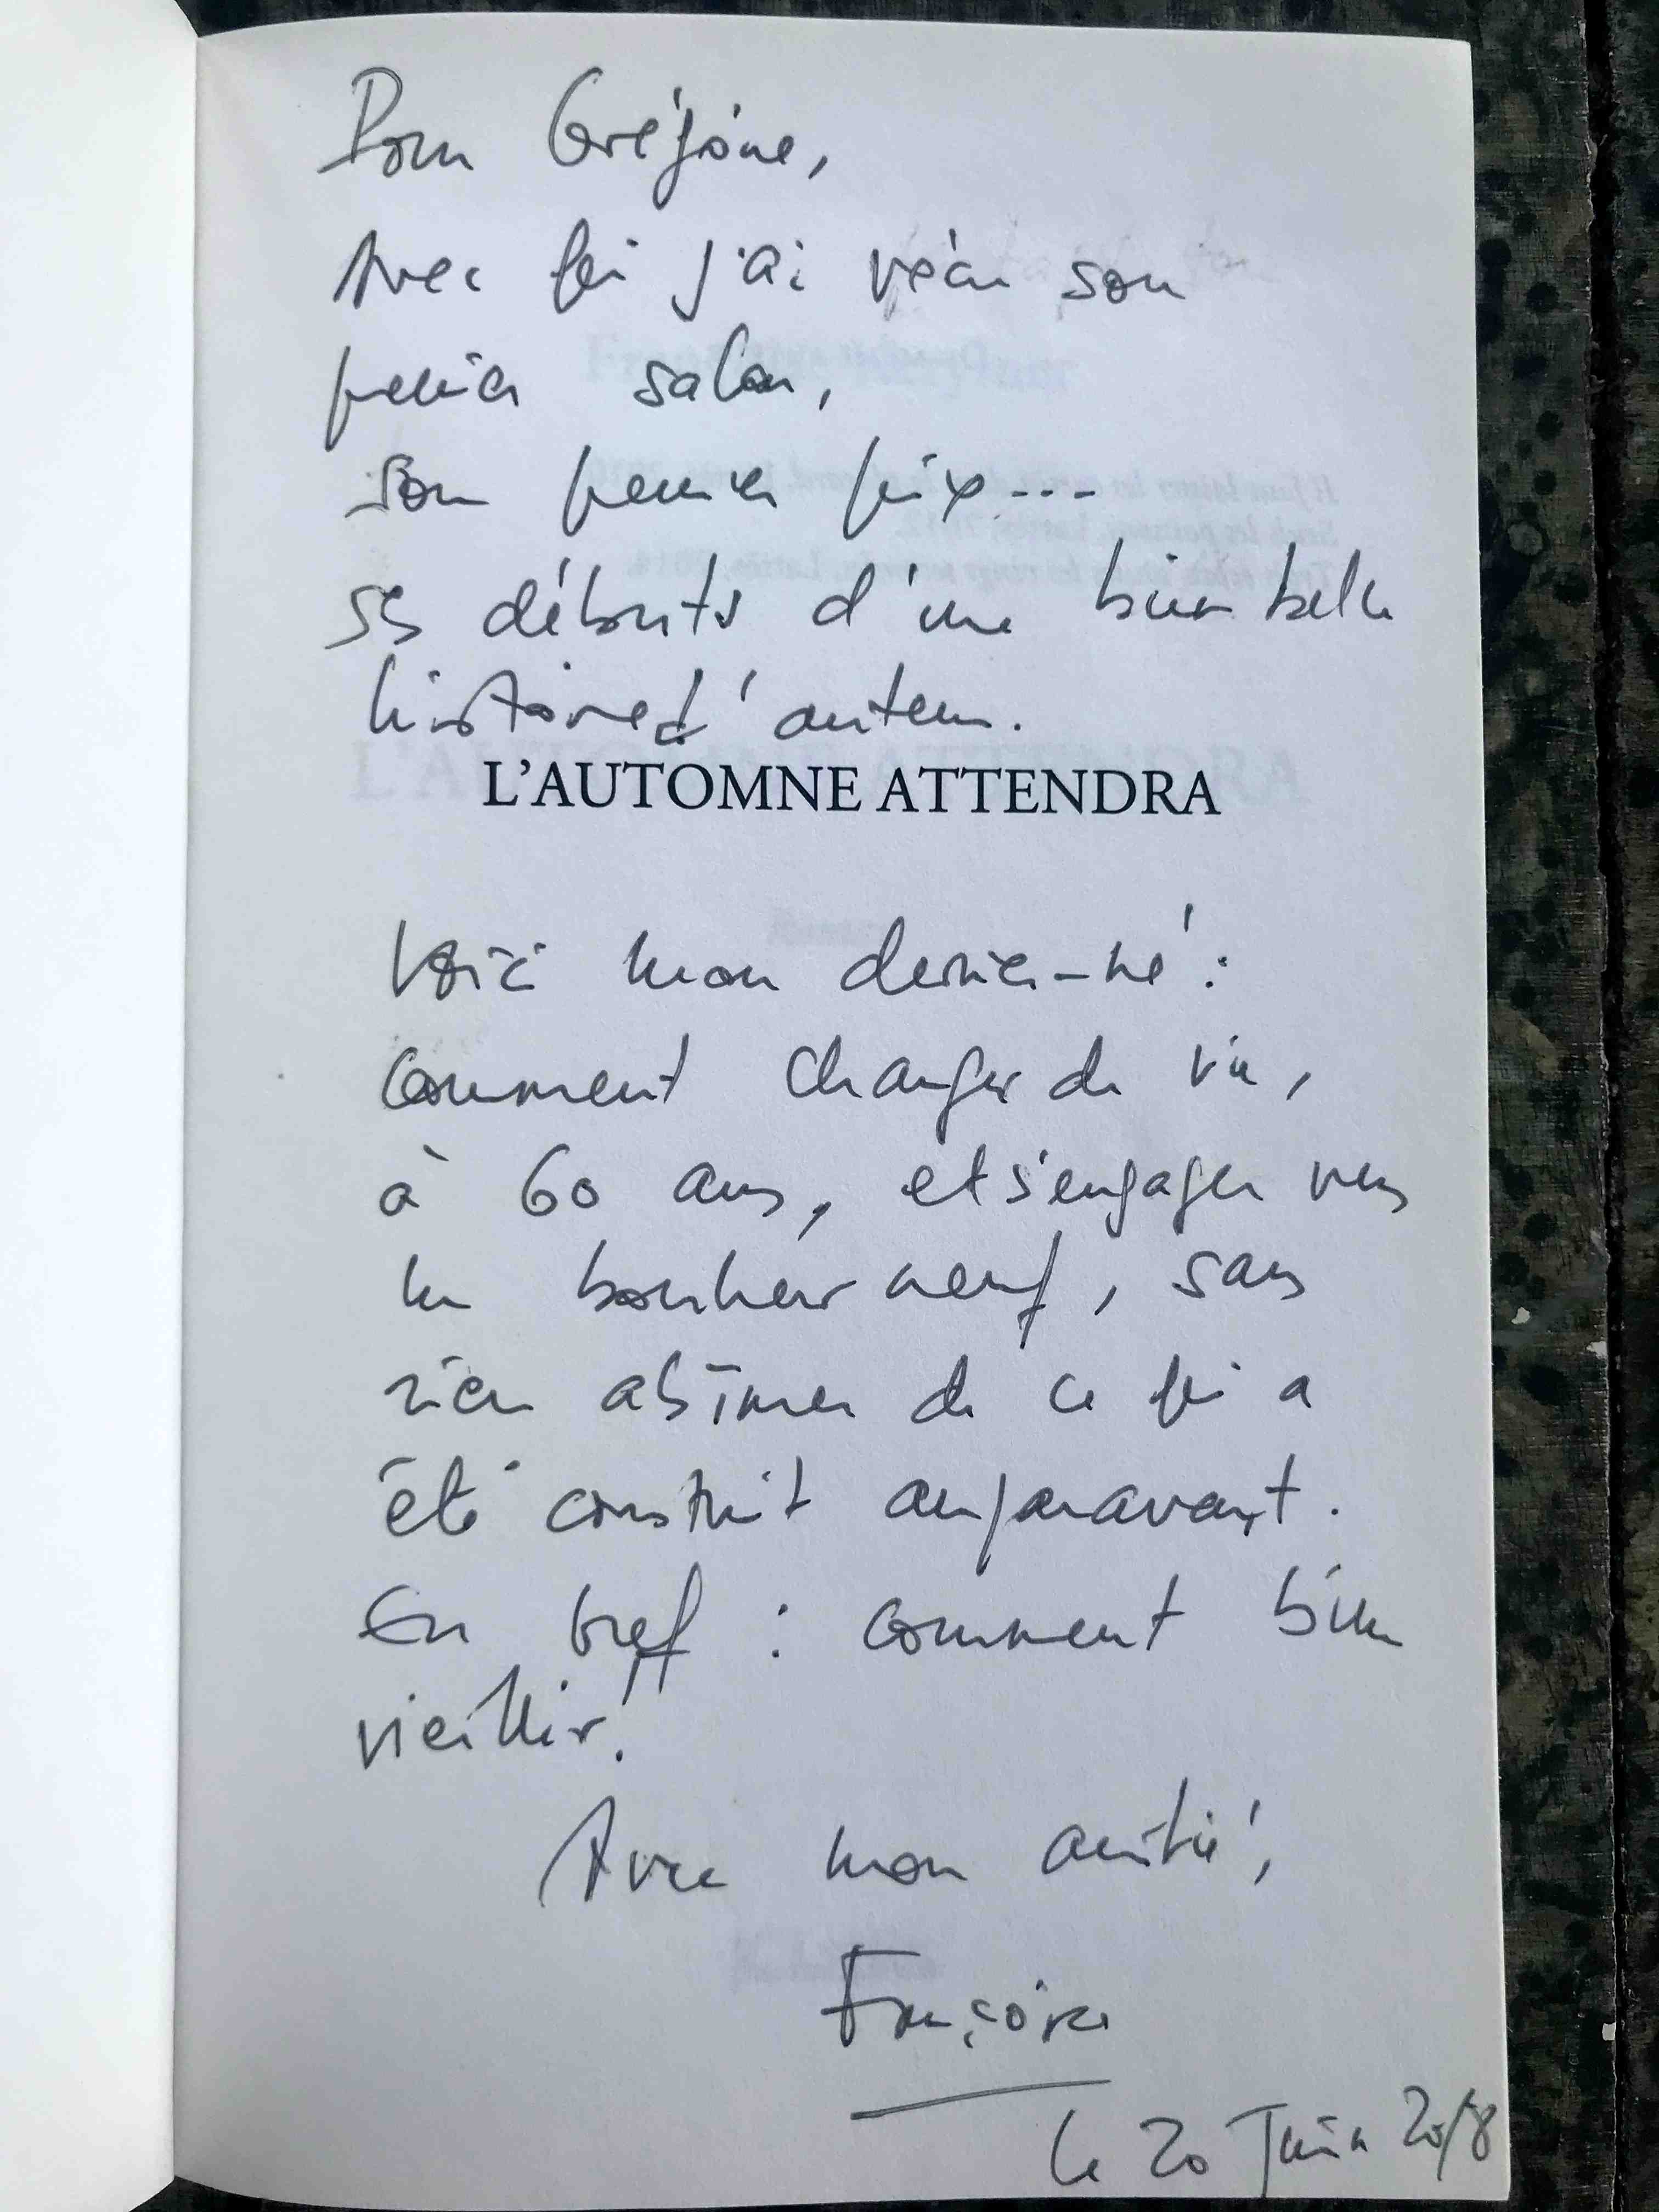 Pour Grégoire,
Avec qui j'ai vécu son
premier salon,
son premier prix...
ses débuts d'une bien belle
histoire d'auteur.
L'AUTOMNE ATTENDRA
Voici mon dernier-né :
Comment changer de vie,
à 60 ans, et s'engager vers
un bonheur neuf, sans
rien abîmer de ce qui a
été construit auparavant.
En bref : comment bien
vieillir !
Avec mon amitié,
Françoise
Le 20 Juin 2018